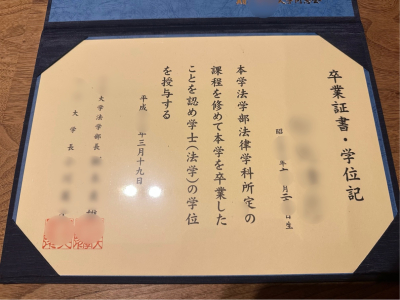 卒業証書・学位記
昭 年 月 日生
本学法学部法律学科所定の
課程を修めて本学を卒業した
ことを認め学士(法学)の学位
を授与する
平成 年三月十九日
大学法学部長
大学長